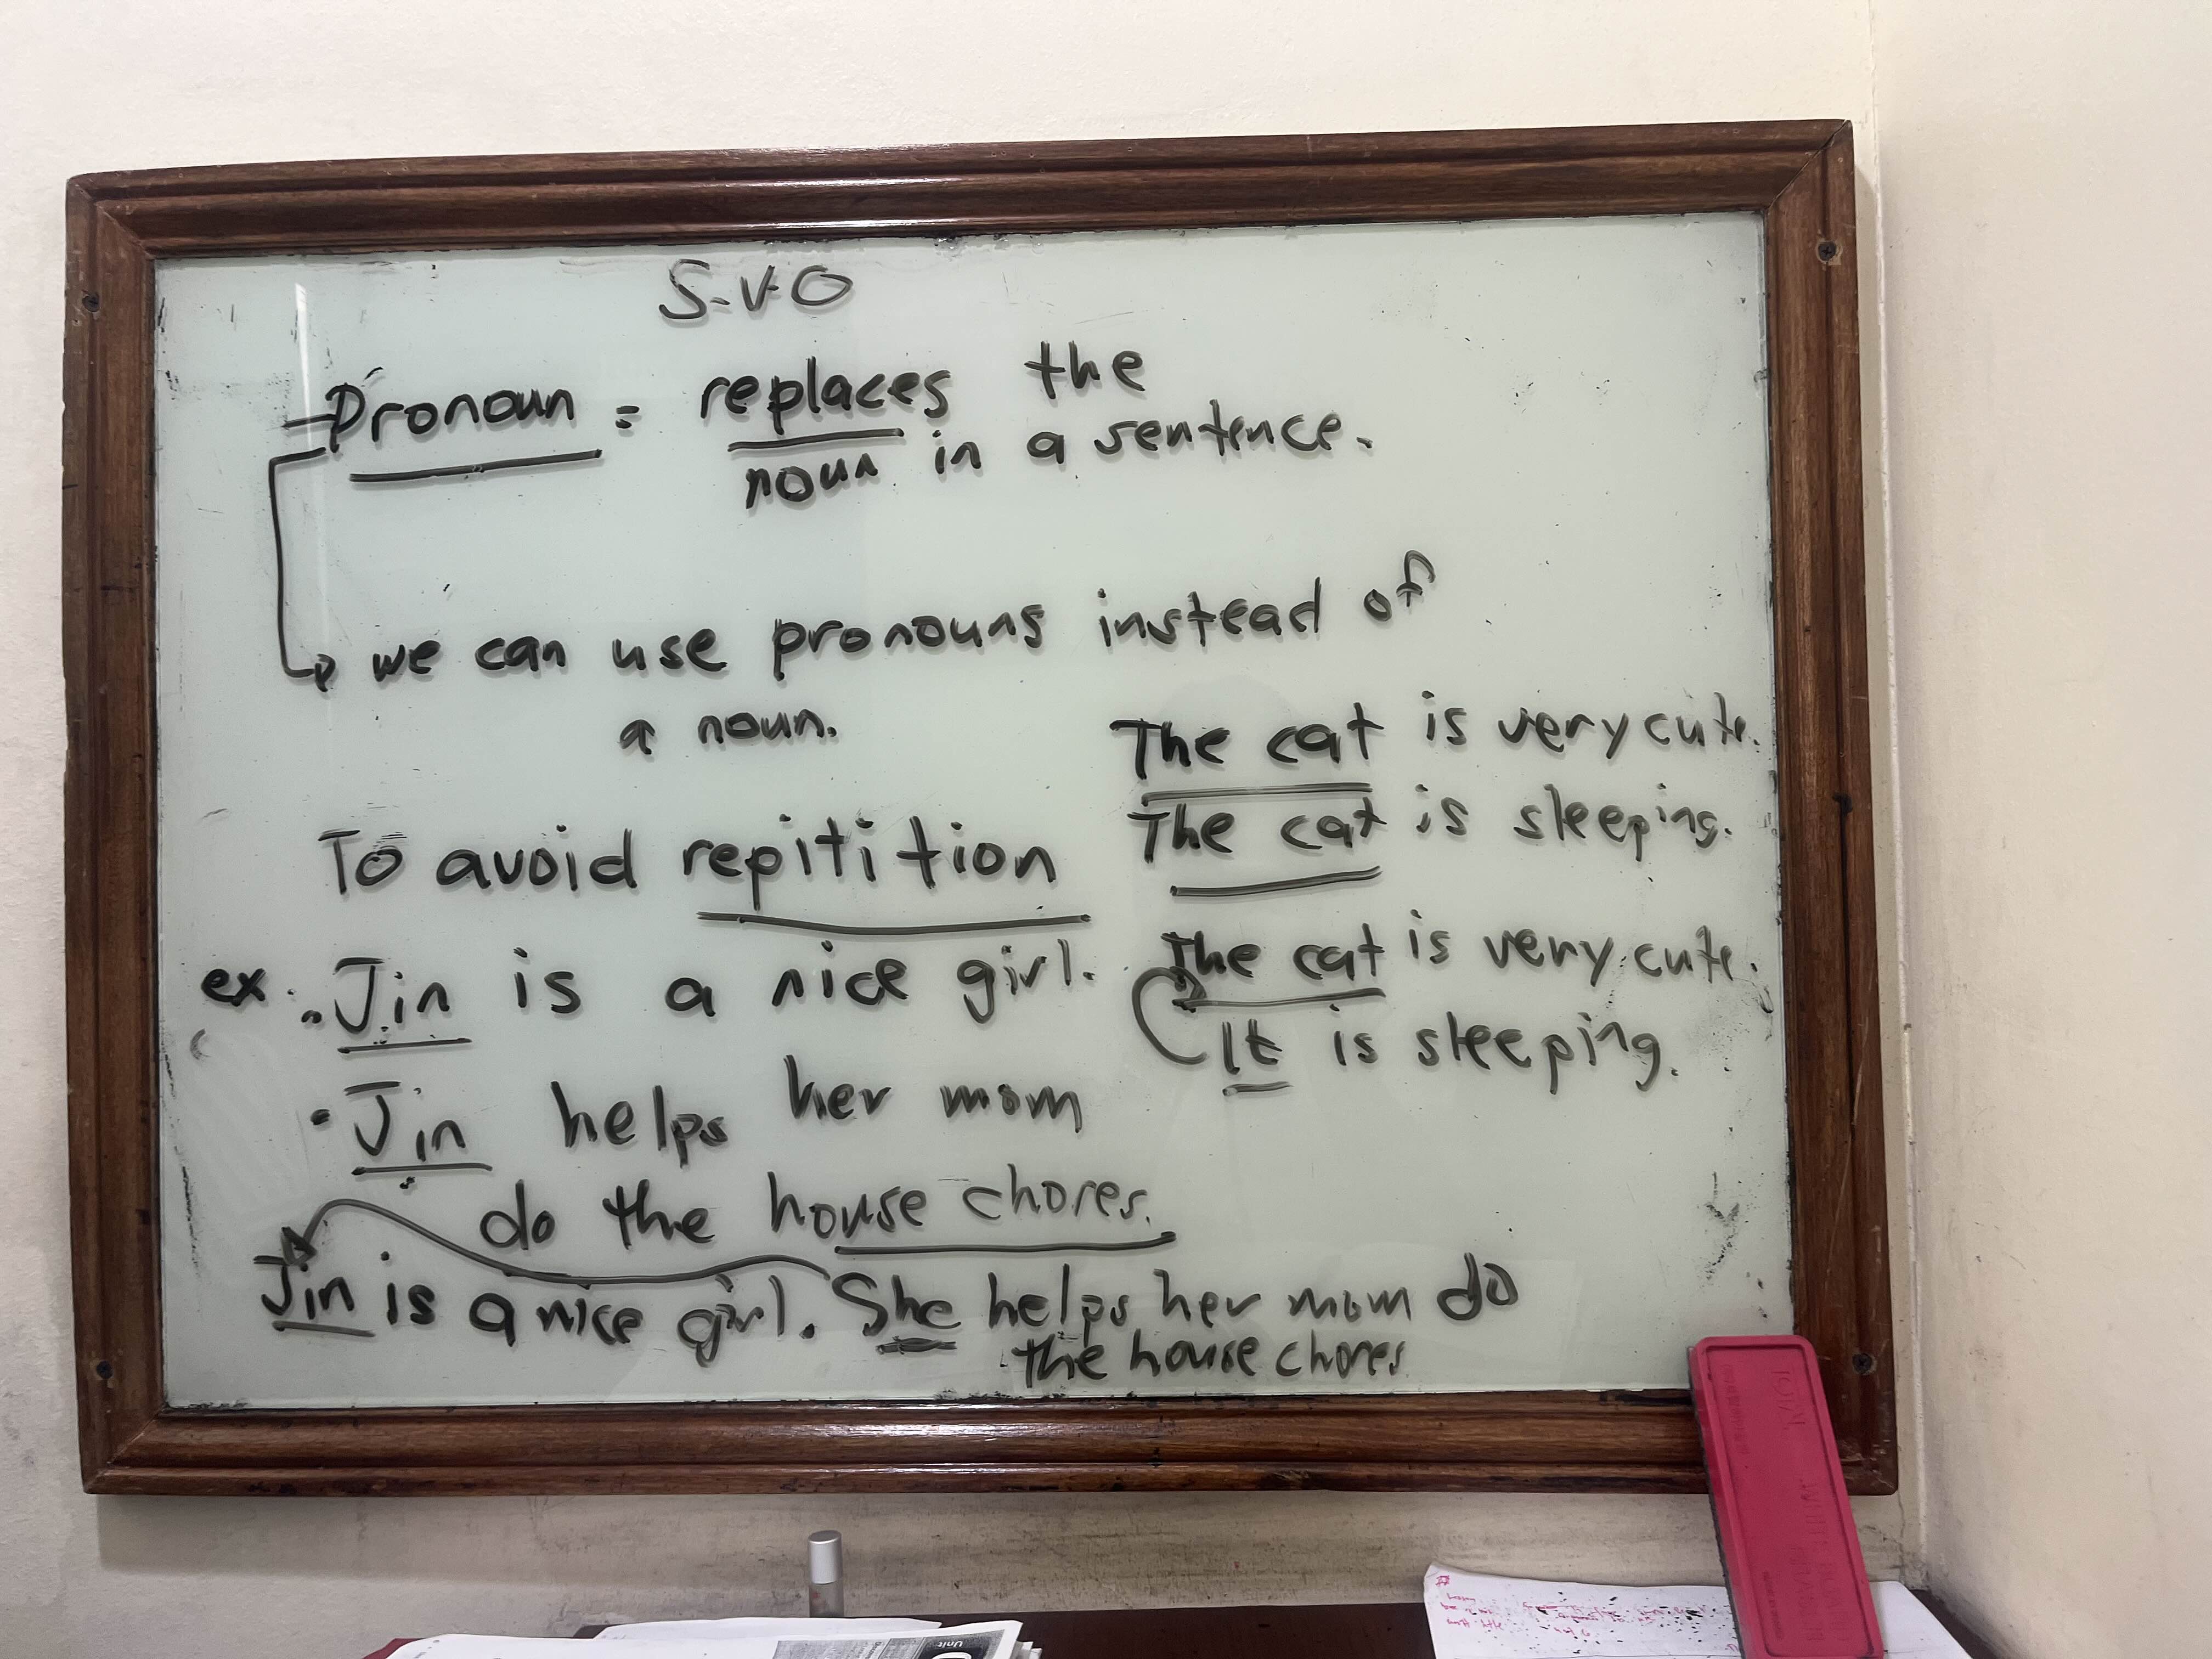 S-V-O
Pronoun = replaces the
noun in a sentence.
we can use pronouns instead of
a noun.
To avoid repitition
ex. Jin is a nice girl.
Jin helps her mom
do the house chores.
Jin is a nice girl. She helps her mom do
the house chores
The cat is very cute.
The cat is sleeping.
The cat is very cute.
It is sleeping.
Unit